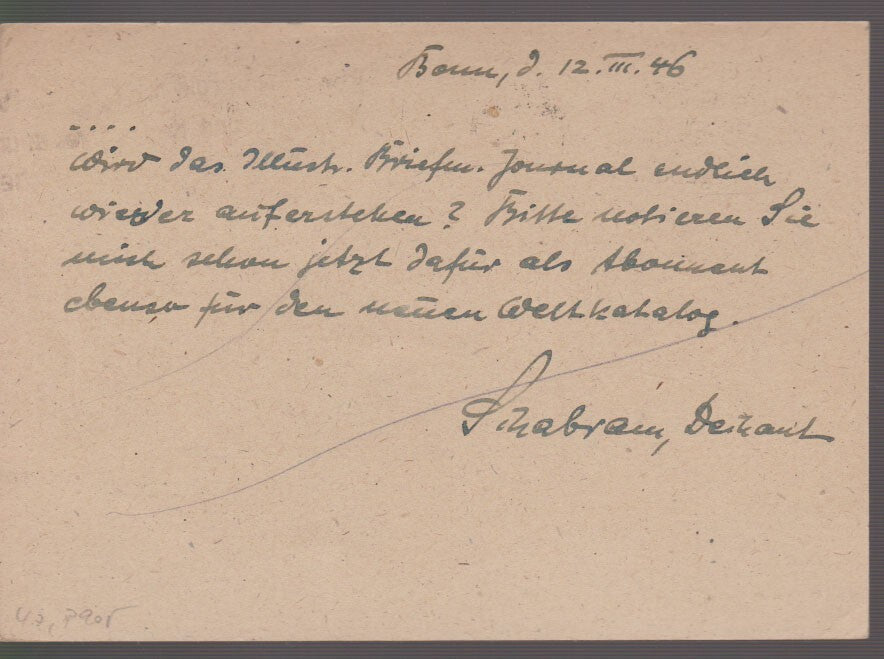 Bonn, d. 12. III. 46
....
wird das Illustr. Briefm. Journal endlich
wieder auferstehen? Bitte notieren Sie
mich schon jetzt dafür als Abonnent
ebenso für den neuen Weltkatalog.
Schabram, Dechant